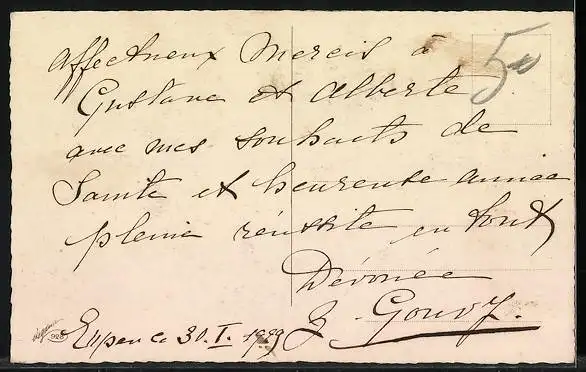 Affectueux Mercis à
Gustave et Alberte
avec mes souhaits de
Santé et heureuse année
pleine réussite en tout
Dévouée
Gouvy.
30.I. 1929
50
928